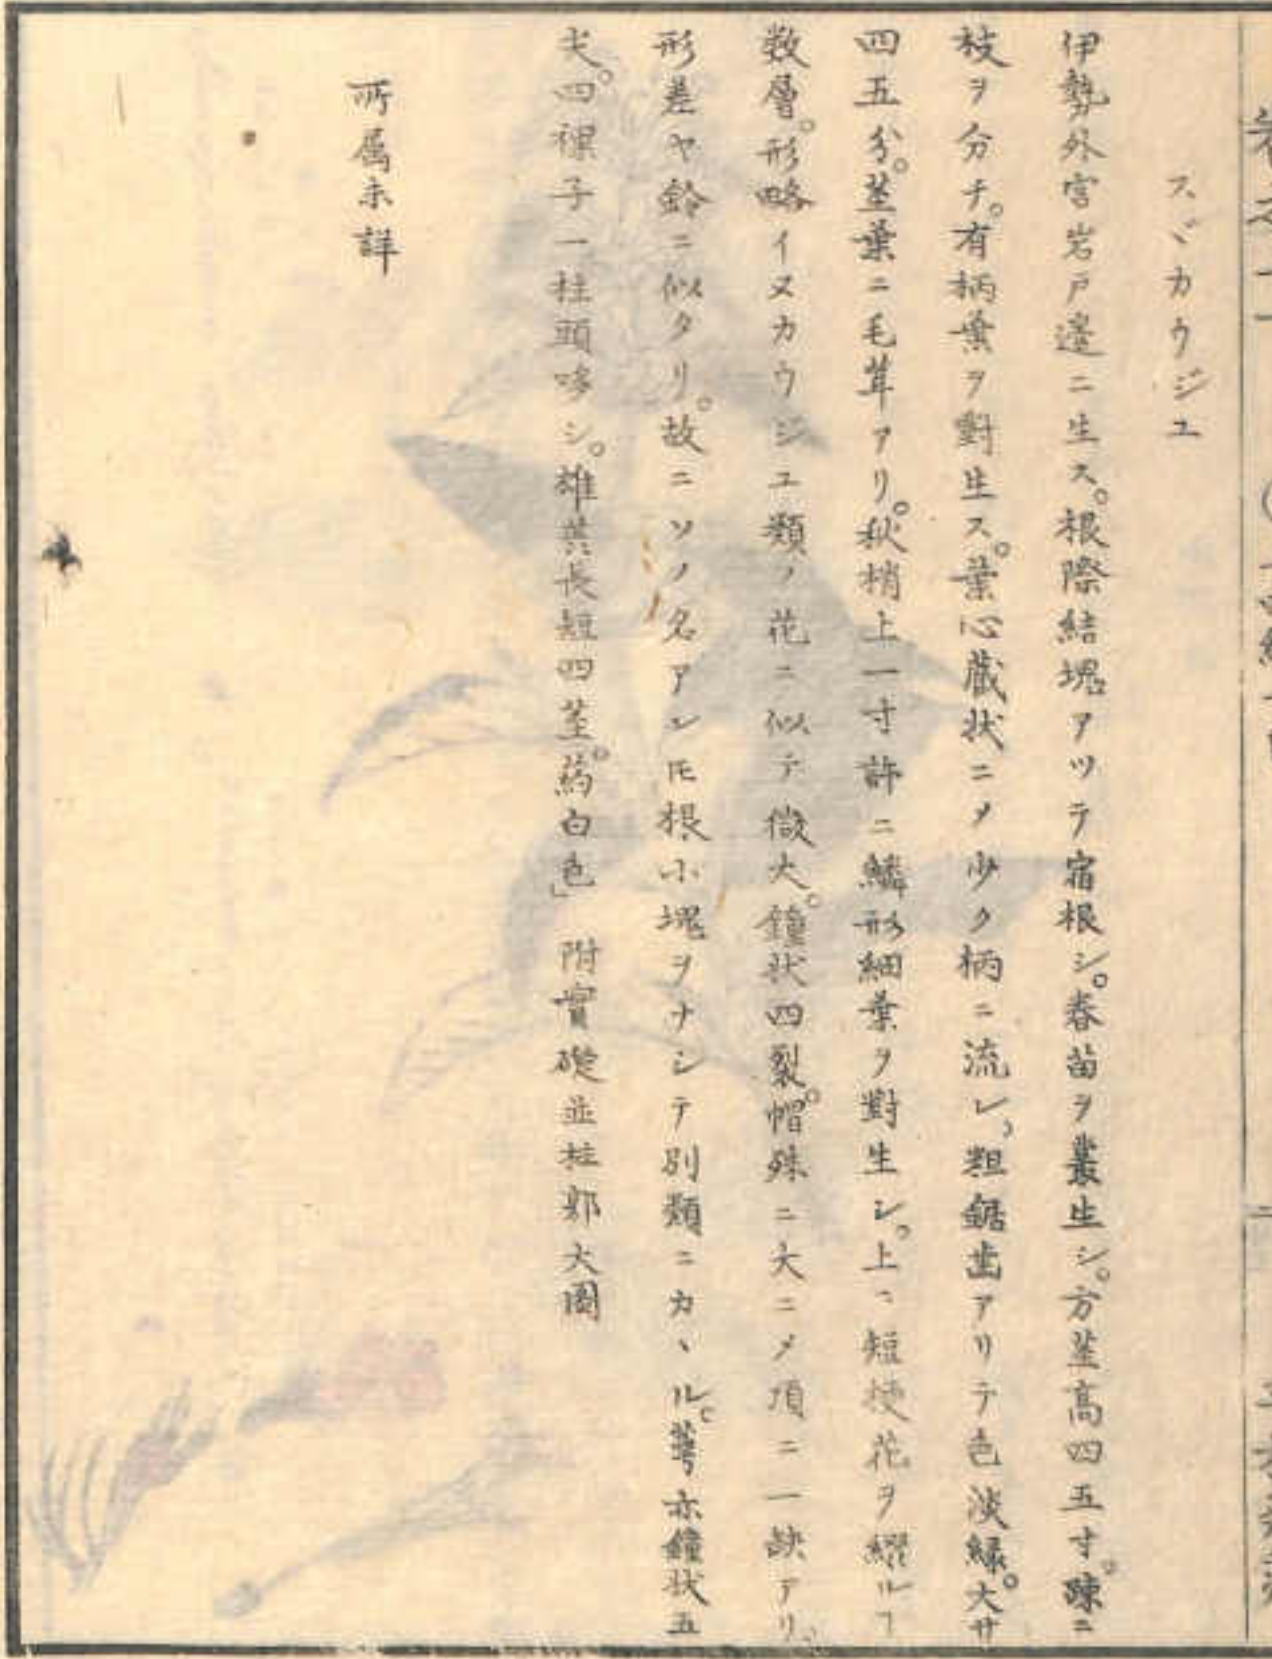 スヾカウジユ
伊勢外宮岩戸邊ニ生ス。根際結塊アツテ宿根シ。春苗ヲ叢生シ。方莖高四五寸。疎ニ
枝ヲ分チ。有柄葉ヲ對生ス。葉心蔵状ニメ少ク柄ニ流レ、粗鋸齒アリテ色淡緑。大サ
四五分。莖葉ニ毛茸アリ。秋梢上一寸許ニ鱗形細葉ヲ對生シ。上ヘ短梗花ヲ綴ルヿ
数層。形略イヌカウジユ類ノ花ニ似テ微大。鐘状四裂。帽殊ニ大ニメ頂ニ一缺アリ。
形差ヤ鈴ニ似タリ。故ニソノ名アレ𪜈根小塊ヲナシテ別類ニカヽル。萼亦鐘状五
尖。四裸子一柱頭哆シ。雄蕊長短四莖。葯白色」 附實礎並柱郭大圖
所属未詳